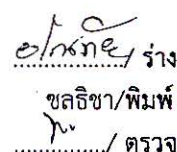 ร่าง
ชลธิชา/พิมพ์
/ ตรวจ